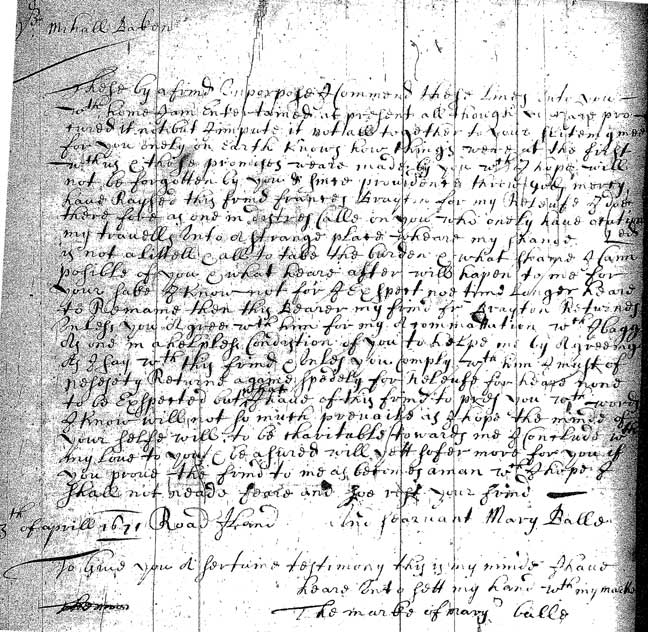 Mihall Bakon
These by a frind In porpose I Commend these Lines Into you
wth home I am Entertained at present all though you have pro
cured it not but I impute it not all together to your
for you onely on Earth knows how things were at the first
with us & those promises weare made by you wth I hope will
not be forgotten by you & since providente throw gods mercy
have Raysed this frind frances Brayton for my Releuse I doe
there fore as one in distres Calle on you who onely have
my travells Into a strange place wheare my shame
is not a littell Call to take the burden & what shame I Cann
posille of you & what heare after will hapen to me for
your sake I know not for I Expect noe time Longer heare
to Remaine then this Bearer my frind fr Brayton Returnes
Unles you Agree wth him for my Acommattion wth
As one in a helples Condistion of you to helpe me by Agreeing
As I say wth this frind Unles you Comply wth him I must of
nesesety Returne againe spedely for Releuse for heare none
to be Exspected but what I have of this frind to pres you wth words
I know will not so much prevaile as I hope the minde of
your selfe will to be charitable towards me I Conclude wth
my Love to you & be asured will yett sofer more for you if
you prove the frind to me as becomes a man wch I hope I
shall not neade feare and soe rest your frind
th of aprill 1671 Road Iland and searuant Mary Balle
To Give you A sertaine testimony this is my minde I have
heare Into sett my hand wth my marke
The marke of mary balle